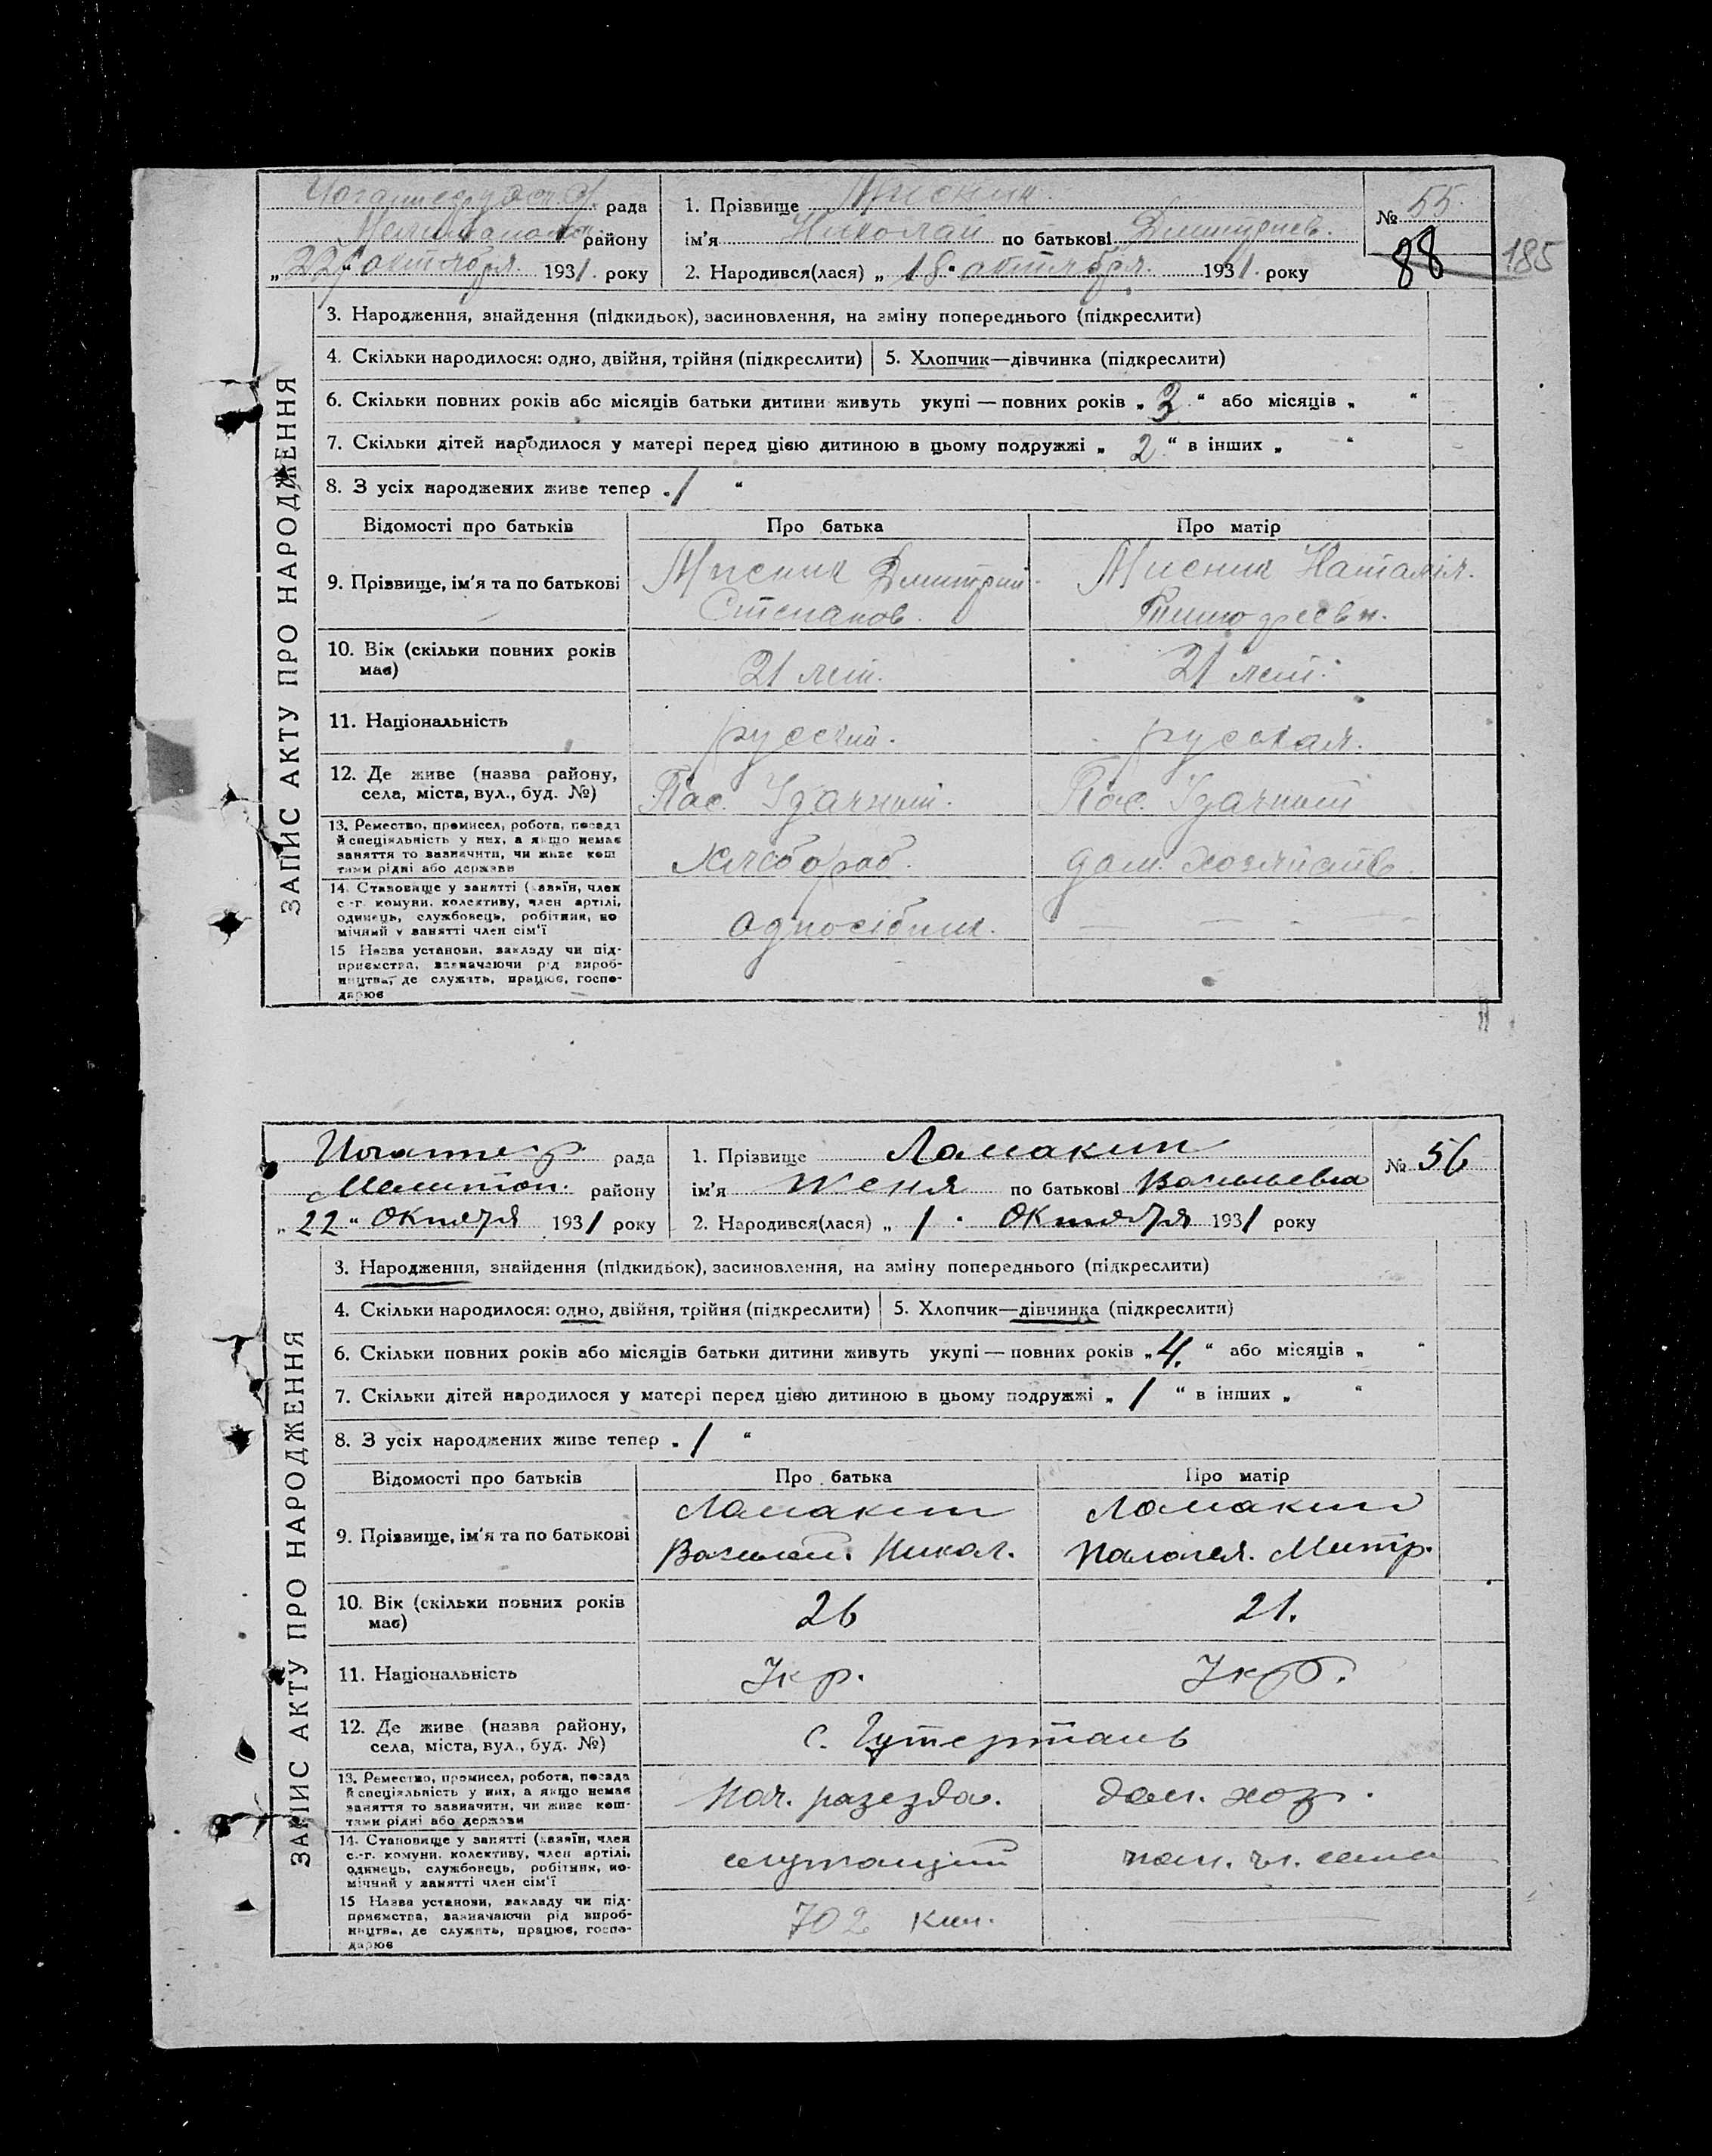 рада
1. Прізвище Мисник
№ 55.
району
ім'я Николай по батькові Дмитриев.
„22" октября 1931. року
2. Народився(лася) „18" октября 1931. року
88
185
ЗАПИС АКТУ ПРО НАРОДЖЕННЯ
3. Народження, знайдення (підкидьок), засиновлення, на зміну попереднього (підкреслити)
4. Скільки народилося: одно, двійня, трійня (підкреслити)
5. Хлопчик—дівчинка (підкреслити)
6. Скільки повних років або місяців батьки дитини живуть укупі — повних років „3" або місяців „ "
7. Скільки дітей народилося у матері перед цією дитиною в цьому подружжі „2" в інших „ "
8. З усіх народжених живе тепер „1 "
Відомості про батьків
Про батька
Про матір
9. Прізвище, ім'я та по батькові
Мисник Дмитрий
Степанов.
Мисник Наталия.
10. Вік (скільки повних років
має)
21 лет.
21 лет.
11. Національність
русский.
русская.
12. Де живе (назва району,
села, міста, вул., буд. №)
Пос. Удачный.
Пос. Удачный
13. Ремество, промисел, робота, посада
й спеціяльність у них, а якщо немає
заняття то зазначити, чи живе кош
тами рідні або держави
Хлебороб.
дом. хозяйство
14. Становище у занятті (хазяїн, член
с.-г. комуни, колективу, член артілі,
одинець, службовець, робітник, по
мічний у занятті член сім'ї
односібник.
— — —
15 Назва установи, закладу чи під-
приємства, зазначаючи рід вироб-
ництва, де служить, працює, госпо-
дарює
рада
1. Прізвище Ломакин
№ 56
Мелитоп. району
ім'я Женя по батькові Васильевна
„22" Октября 1931 року
2. Народився(лася) „1" Октября 1931 року
ЗАПИС АКТУ ПРО НАРОДЖЕННЯ
3. Народження, знайдення (підкидьок), засиновлення, на зміну попереднього (підкреслити)
4. Скільки народилося: одно, двійня, трійня (підкреслити)
5. Хлопчик—дівчинка (підкреслити)
6. Скільки повних років або місяців батьки дитини живуть укупі — повних років „4." або місяців „ "
7. Скільки дітей народилося у матері перед цією дитиною в цьому подружжі „1 " в інших „ "
8. З усіх народжених живе тепер „1 "
Відомості про батьків
Про батька
Про матір
9. Прізвище, ім'я та по батькові
Ломакин
Василий. Никол.
Ломакин
Митр.
10. Вік (скільки повних років
має)
26
21.
11. Національність
Укр.
Укр.
12. Де живе (назва району,
села, міста, вул., буд. №)
с. Гутерталь
13. Ремество, промисел, робота, посада
й спеціяльність у них, а якщо немає
заняття то зазначити, чи живе кош-
тами рідні або держави
Нач. разезда.
дом. хоз.
14. Становище у занятті (хазяїн, член
с.-г. комуни, колективу, член артілі,
одинець, службовець, робітник, по-
мічний у занятті член сім'ї
служащий
пом. чл. семи
15 Назва установи, закладу чи під-
приємства, зазначаючи рід вироб-
ництва, де служить, працює, госпо-
дарює
702 клм.